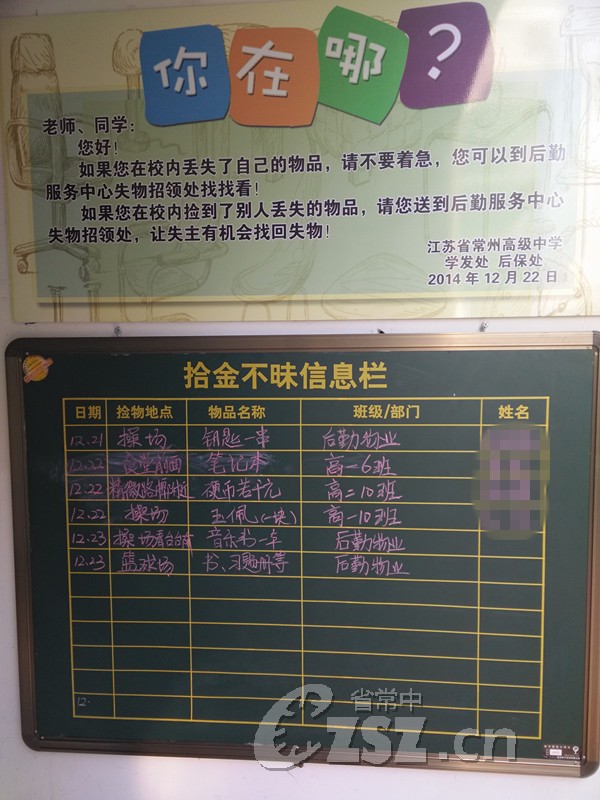 你在哪？
老师、同学：
您好！
如果您在校内丢失了自己的物品，请不要着急，您可以到后勤
服务中心失物招领处找找看！
如果您在校内捡到了别人丢失的物品，请您送到后勤服务中心
失物招领处，让失主有机会找回失物！
江苏省常州高级中学
学发处 后保处
2014年12月22日
拾金不昧信息栏
日期 捡物地点 物品名称 班级/部门 姓名
12.21 操场 钥匙一串 后勤物业
12.22 食堂前面 笔记本 高一6班
12.22 精微路牌附近 硬币若干元 高二10班
12.22 操场 玉佩(一块) 高一10班
12.23 操场看台前 音乐书一本 后勤物业
12.23 篮球场 书、习题册等 后勤物业
12.
省常中
CZSZ.cn